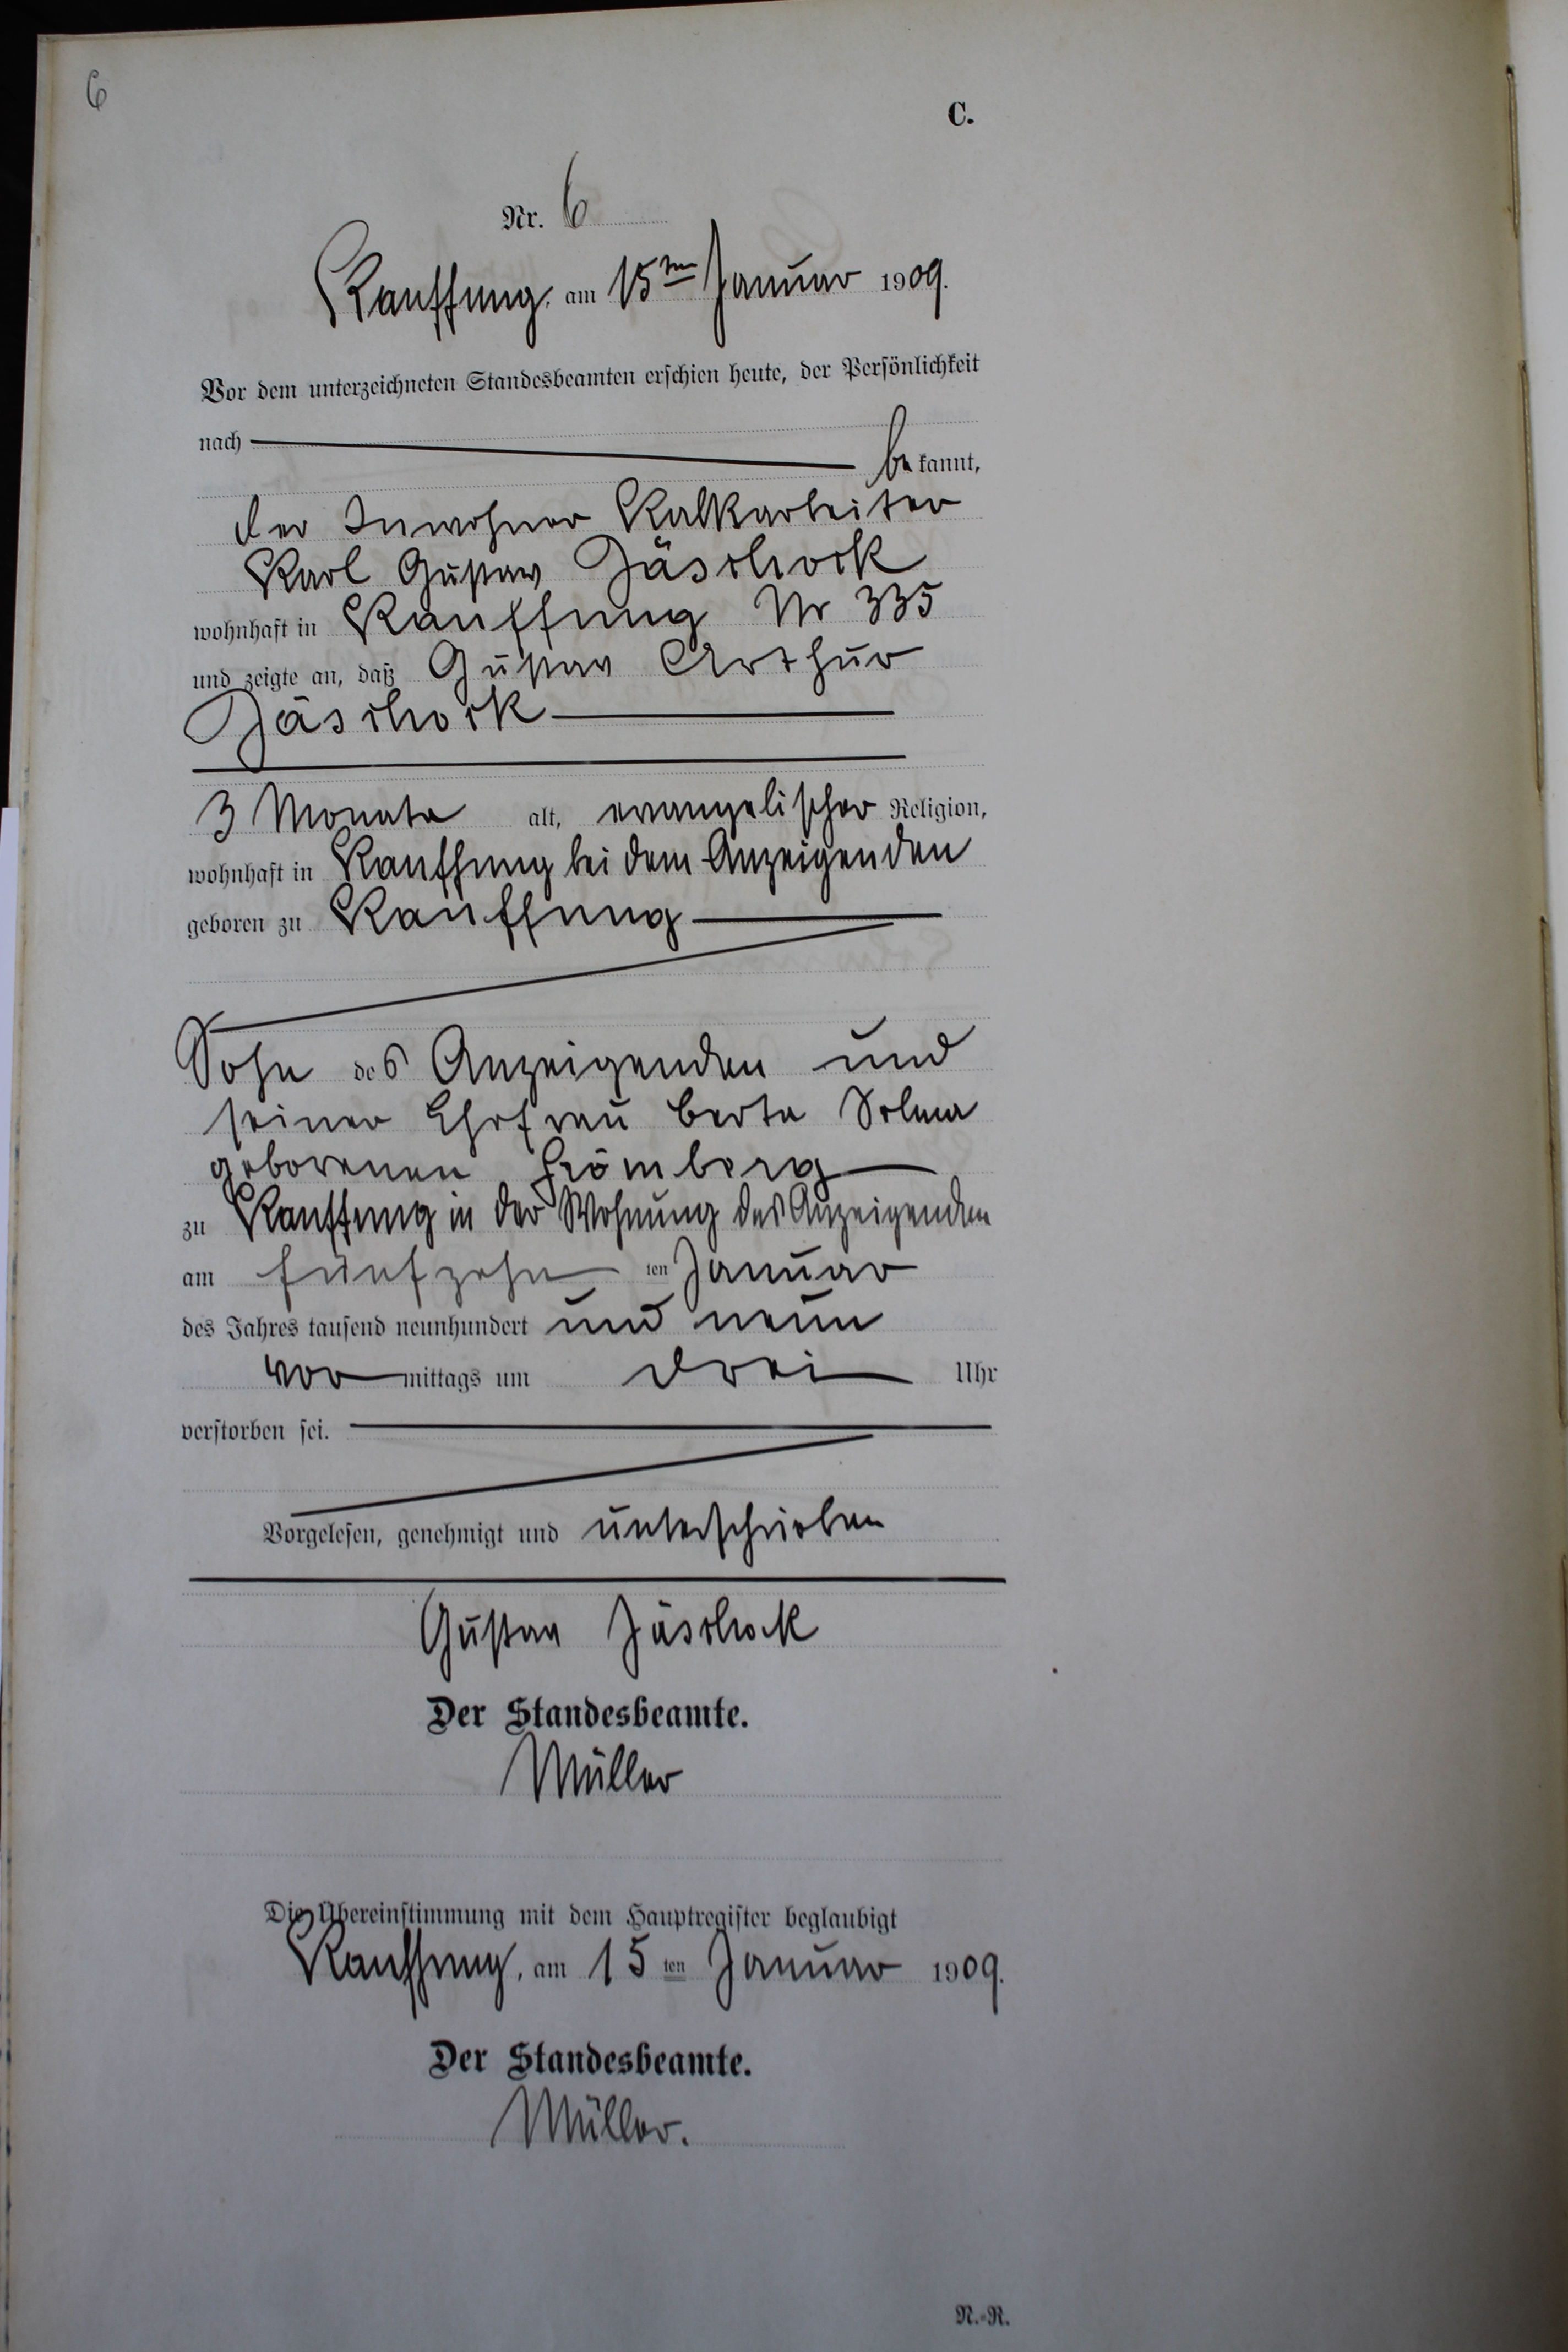 6
C.
Nr. 6
Kauffung, am 15ten Januar 1909.
Vor dem unterzeichneten Standesbeamten erschien heute, der Persönlichkeit
nach bekannt,
der Inwohner Kalkarbeiter
Karl Gustav Jäschock
wohnhaft in Kauffung Nr 335
und zeigte an, daß Gustav Arthur
Jäschock
3 Monate alt, evangelischer Religion,
wohnhaft in Kauffung bei dem Anzeigenden
geboren zu Kauffung
Sohn des Anzeigenden und
seiner Ehefrau Berta Selma
geborenen
zu Kauffung in der Wohnung des Anzeigenden
am fünfzehn ten Januar
des Jahres tausend neunhundert und neun
vor mittags um drei Uhr
verstorben sei.
Vorgelesen, genehmigt und unterschrieben
Gustav Jäschock
Der Standesbeamte.
Müller
Die Übereinstimmung mit dem Hauptregister beglaubigt
Kauffung, am 15 ten Januar 1909.
Der Standesbeamte.
Müller.
N.-R.